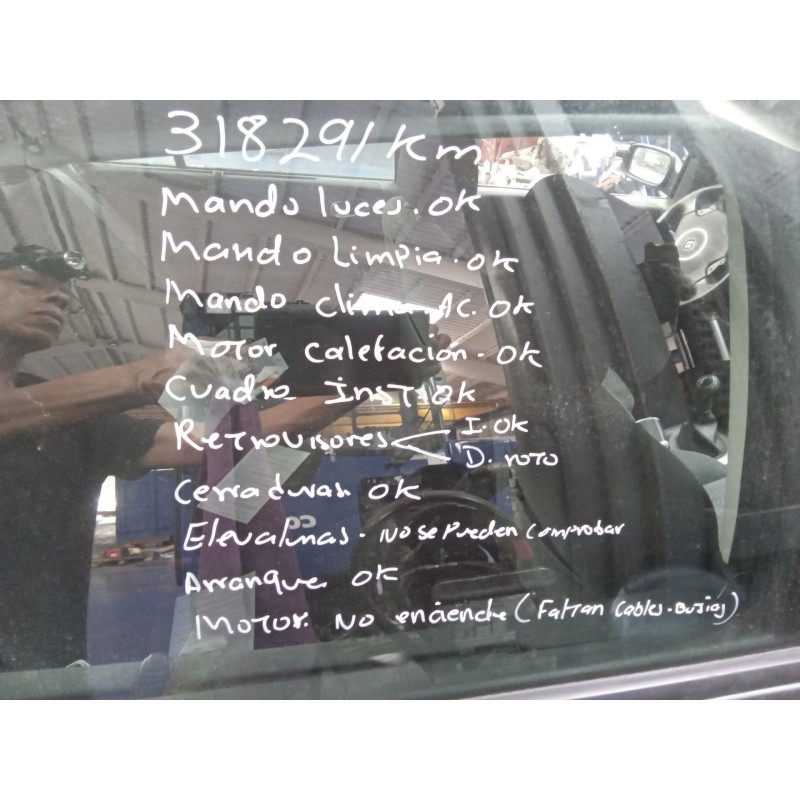 318291 Km
Mando luces. OK
Mando Limpia. OK
Mando clima AC. OK
Motor calefacion. OK
Cuadro inst. OK
Retrovisores I. OK
D. roto
Cerraduras OK
Elevalunas. No se pueden comprobar
Arranque OK
Motor. No enciende (Faltan Cables. Bujias)